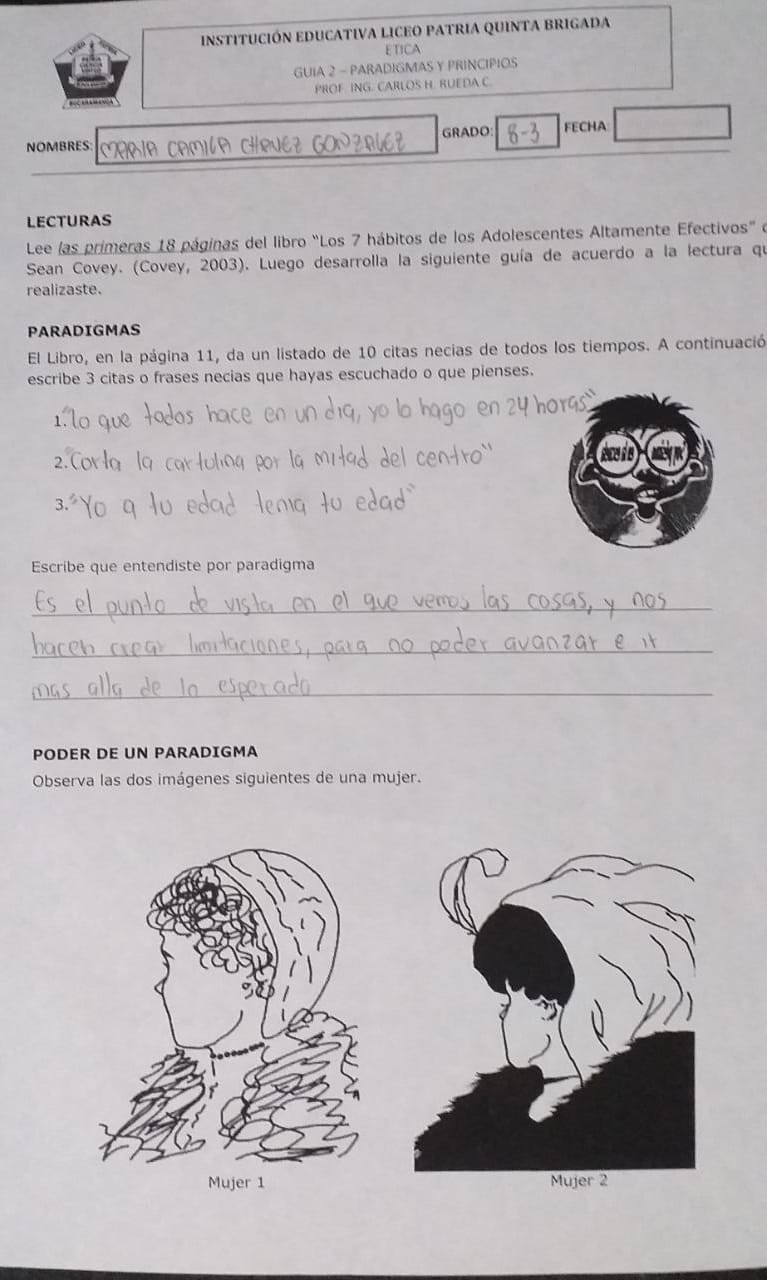 INSTITUCIÓN EDUCATIVA LICEO PATRIA QUINTA BRIGADA
ETICA
GUIA 2 - PARADIGMAS Y PRINCIPIOS
PROF. ING. CARLOS H. RUEDA C.
BUCARAMANGA
NOMBRES: MARIA CAMILA CHAVEZ GONZALEZ GRADO: 8-3 FECHA:
LECTURAS
Lee las primeras 18 páginas del libro "Los 7 hábitos de los Adolescentes Altamente Efectivos"
Sean Covey. (Covey, 2003). Luego desarrolla la siguiente guía de acuerdo a la lectura qu
realizaste.
PARADIGMAS
El Libro, en la página 11, da un listado de 10 citas necias de todos los tiempos. A continuació
escribe 3 citas o frases necias que hayas escuchado o que pienses.
1. "lo que todos hace en un dia, yo lo hago en 24 horas"
2. "Corta la cartulina por la mitad del centro"
3. "Yo a tu edad tenia tu edad"
Escribe que entendiste por paradigma
Es el punto de vista en el que vemos las cosas, y nos
hacen crear limitaciones, para no poder avanzar e ir
mas alla de lo esperado
PODER DE UN PARADIGMA
Observa las dos imágenes siguientes de una mujer.
Mujer 1 Mujer 2